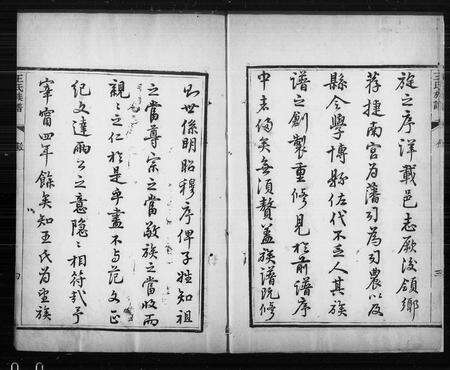 王氏族譜
三
旋之序詳載邑志厥後領鄉
荐捷南宮為藩司為司農以及
縣令學博縣佐代不乏人其族
譜之創製重修見於前譜序
中者備矣無須贅蓋族譜既修
世係明昭穆序俾子姓知祖
之當尊宗之當敬族之當收而
親〻之仁於是乎盡不与范文正
紀文達兩公之意隱〻相符哉予
宰甯四年餘矣知王氏為望族
王氏族譜